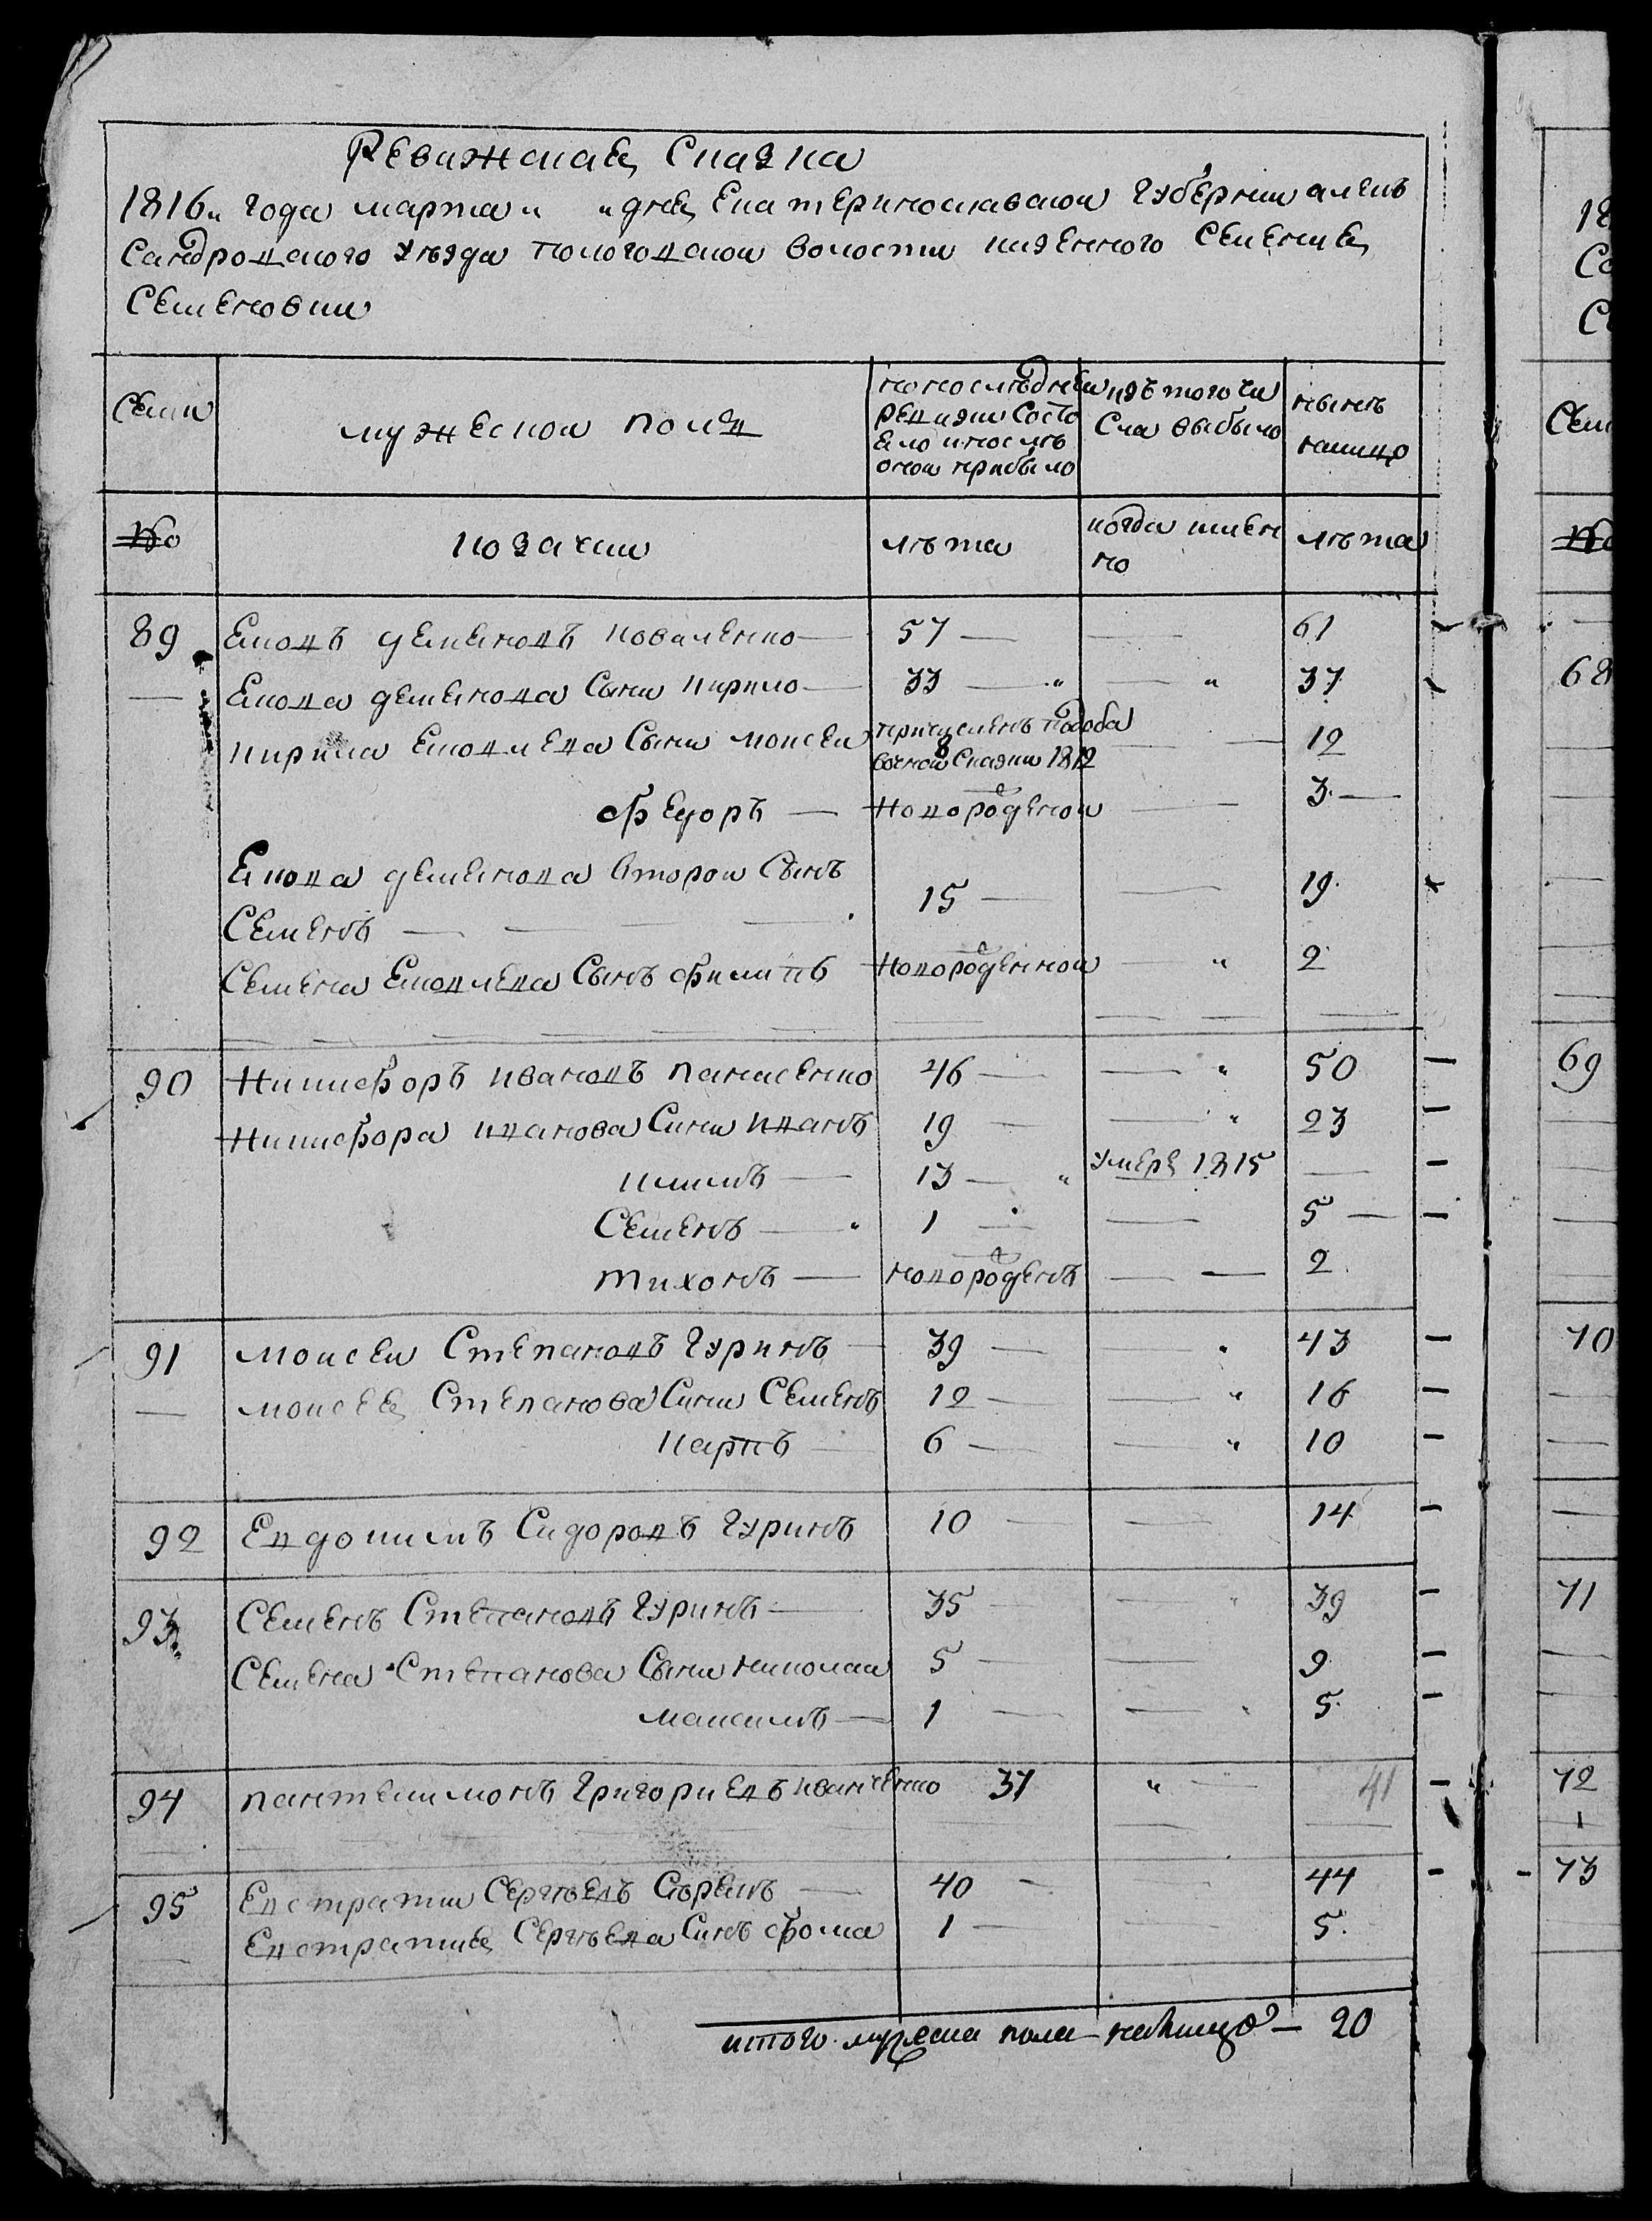 Ревижская Сказка
1816„ года марта „ „ дня Екатеринославской Губернии алек
Сандровского уезда пологовской волости казенного Селения
Семеновки
Семи
мужеской полъ
по последней ревизии Состояло и после оной прибыло
изъ того числа выбыло
ныне налицо
№
козачки
лѣта
когда именно
лѣта
89 Яковъ деменовъ коваленко — 57 — — 61
Якова деменова Сыни кирило — 33 — „ — „ 37
кирила Яковлева Сыни моисеи причисленъ подобавочной Сказки 1812 — 12
Федоръ — новородженои — 3 —
Якова деменова второи Сынъ
Семенъ — — — 15 — — 19
Семена Яковлева Сынъ филипъ новородженнои — „ 2
90 Никифоръ ивановъ панасенко 46 — — „ 50
Никифора иванова Сини иванъ 19 — — „ 23
климъ — 13 — „ умерѣ 1815 —
Семенъ — „ 1 — — 5 —
тихонъ — новородженъ — — 2
91 моисеи Степановъ Гуринъ — 39 — „ 43
— моисея Степанова Сини Семенъ 12 — — „ 16
карпъ — 6 — — „ 10
92 Евдокимъ Сидоровъ Гуринъ 10 — — 14
93 Семенъ Степановъ Гуринъ — 35 — — „ 39
Семена Степанова Сыни николаи 5 — — 9
максимъ — 1 — — 5
94 пантелимонъ Григориевъ иванченко 37 „ — 41
95 Евстратии Сергѣевъ — 40 — — 44
Евстратия Сергѣева Синъ фома 1 — — 5
итого мужеска пола налицо — 20
18
Со
С
Сем
№
68
69
70
71
72
73